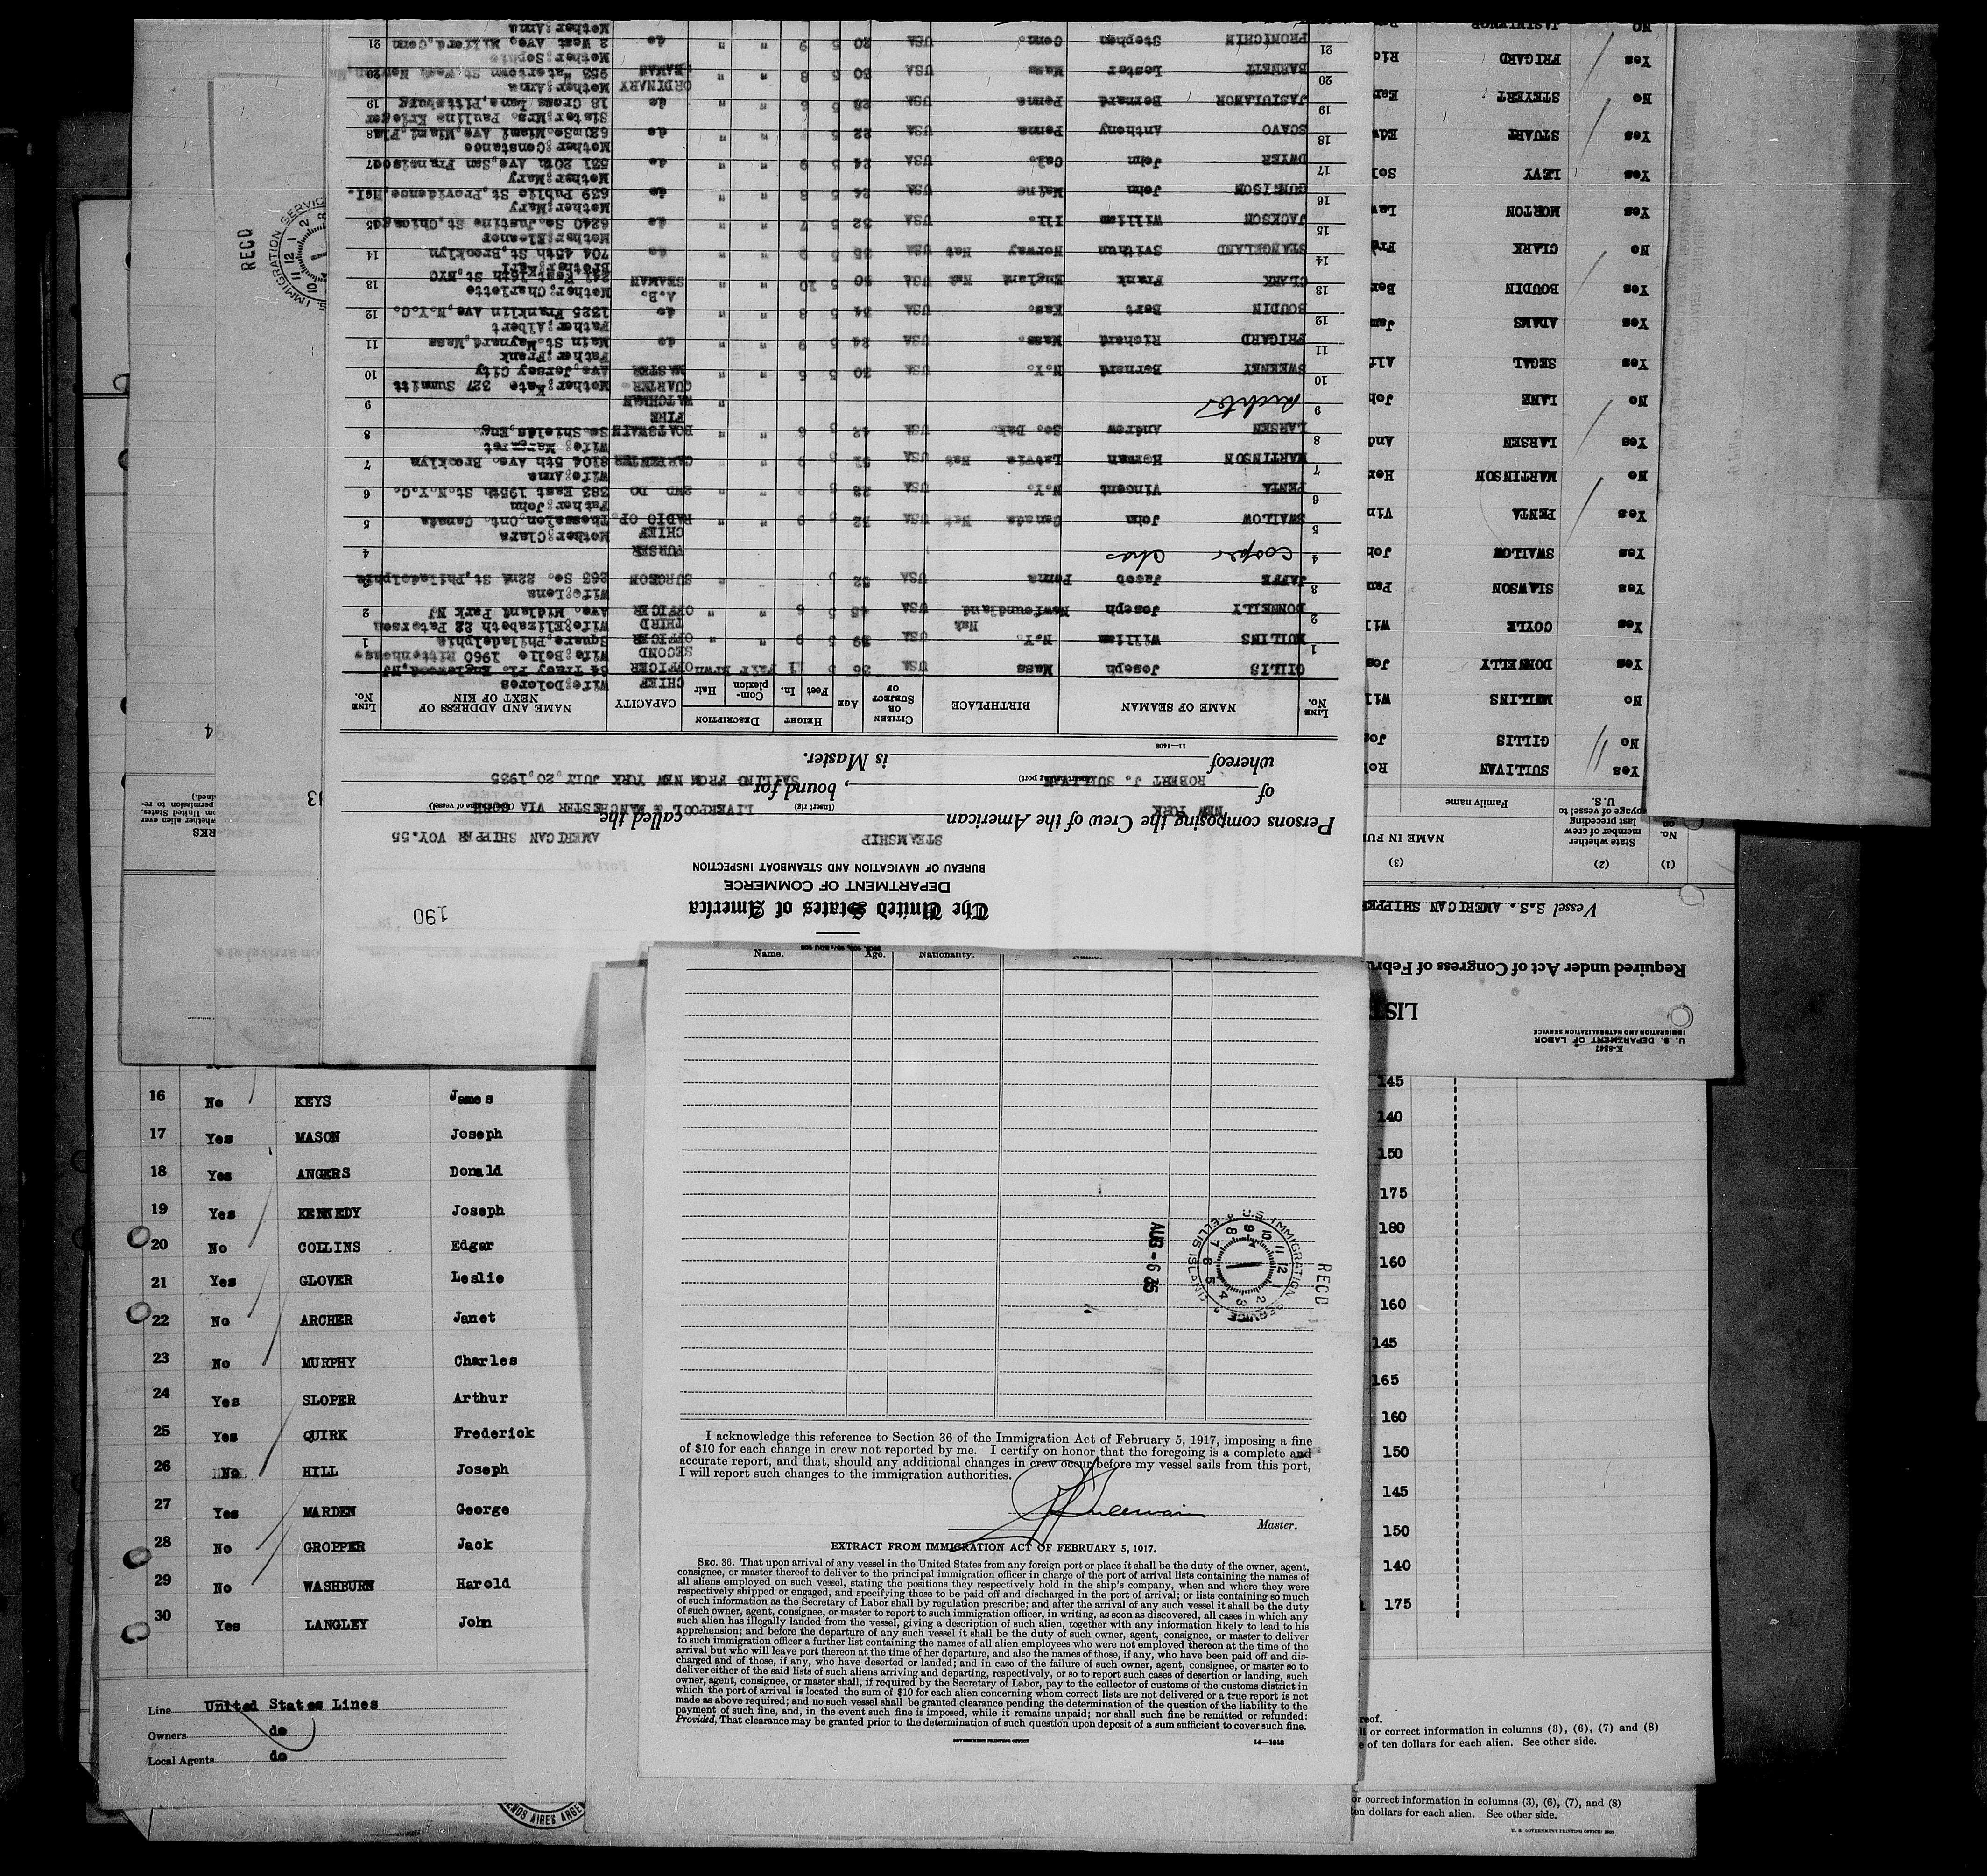 190
The United States of America
DEPARTMENT OF COMMERCE
BUREAU OF NAVIGATION AND STEAMBOAT INSPECTION
STEAMSHIP AMERICAN SHIPPER VOY.55
Persons composing the Crew of the American called the
NEW YORK (Insert rig) LIVERPOOL & MANCHESTER VIA (Insert name of vessel)
of , bound for
ROBERT J. SULLIVAN SAILING FROM NEW YORK JULY,20,1935
whereof is Master.
11—1408
LINE No. NAME OF SEAMAN BIRTHPLACE CITIZEN OR SUBJECT OF AGE HEIGHT Feet In. DESCRIPTION Complexion Hair CAPACITY NAME AND ADDRESS OF NEXT OF KIN LINE No.
GILLIS Joseph Mass USA 36 5 11 Fair Brwn CHIEF OFFICER Wife;Dolores 64 Tracy Pl. Englewood,NJ
1 MULLINS William N.Y. USA 39 5 9 " " SECOND OFFICER Wife;Belle 1960 Rittenhouse Square,Philadelphia 1
2 DONNELLY Joseph Newfoundland Nat USA 45 5 6 " " THIRD OFFICER Wife;Elizabeth 22 Paterson Ave. Midland Park NJ 2
3 JAFFE Jacob Penna USA 52 5 " SURGEON Wife;Lena 263 So. 22nd St,Philadelphia 3
4 Cooper Chas PURSER 4
5 SWALLOW John Canada Nat USA 32 5 9 " " CHIEF RADIO OP. Mother;Clara Thessalon,Ont. Canada 5
6 PENTA Vincent N.Y. USA 22 5 " " 2ND DO Father;John 383 East 195th St.N.Y.C. 6
7 MARTINSON Herman Latvia Nat USA 51 5 9 " CARPENTER Wife;Anna 8104 5th Ave. Brooklyn 7
8 LARSEN Andrew So. Dak. USA 42 5 6 " " BOATSWAIN Wife; Margaret So. Shields,Eng. 8
9 " FIRE WATCHMAN 9
10 SWEENEY Bernard N.Y. USA 20 5 6 " " QUARTER MASTER Mother;Kate 327 Summitt Ave,Jersey City 10
11 FRIGARD Richard Mass. USA 24 5 9 " " do Father;Frank Main St.Maynard,Mass 11
12 BOUDIN Bert Kas. USA 34 5 8 " " do Father;Albert 1325 Franklin Ave,N.Y.C. 12
13 CLARK Frank England Nat USA 30 5 10 " " A.B. SEAMAN Mother;Charlotte 241 West 15th St,NYC 13
14 STANGELAND Svithun Norway Nat USA 35 5 9 " " do Brother;Karl 704 45th St,Brooklyn 14
15 JACKSON William Ill. USA 32 5 7 " " do Mother;Eleanor 6240 So.Justine St,Chicago 15
16 GUNNISON John Maine USA 24 5 8 " " do Mother;Mary 639 Public St,Providence,R.I. 16
17 DWYER John Cal. USA 24 5 9 " " do Mother;Mary 551 20th Ave,San Francisco 17
18 SCAVO Anthony Penna USA 22 5 " " do Mother;Constance 620 So.Miami Ave,Miami,Fla 18
19 JASIULANOR Bernard Penna USA 28 5 6 " " do Sister;Mrs. Pauline Krieger 18 Cross Lane,Pittsburg 19
20 BARNETT Lester Mass USA 30 5 8 " " ORDINARY SEAMAN Mother;Anna 953 Watertown St.West Newton, 20
21 PRONICHIN Stephen Conn. USA 20 5 9 " " do Mother;Sophie 2 West Ave. Milford,Conn 21
Mother;Anna
K-8547
U. S. DEPARTMENT OF LABOR
IMMIGRATION AND NATURALIZATION SERVICE
LIST
Required under Act of Congress of Febru
Vessel S.S. AMERICAN SHIPPER
(1) (2) (3)
State whether member of crew last preceding voyage of vessel to U. S.
NAME IN FU
Family name
Yes SULLIVAN Rob
No GILLIS Jos
No MULLINS Wil
Yes DONNELLY Jos
Yes COYLE Wil
Yes SLAWSON Pau
Yes SWALLOW Joh
Yes PENTA Vin
No MARTINSON Her
Yes LARSEN And
No LANE Joh
Yes SEGAL Alf
Yes ADAMS Jam
Yes BOUDIN Ber
No CLARK Fra
Yes MORTON Law
Yes LEVY Sol
Yes STUART Edw
No STEYERT Ear
Yes FRIGARD Ric
No
RECD
IMMIGRATION SERVICE
4
13
16 No KEYS James
17 Yes MASON Joseph
18 Yes ANGERS Donald
19 Yes KENNEDY Joseph
20 No COLLINS Edgar
21 Yes GLOVER Leslie
22 No ARCHER Janet
23 No MURPHY Charles
24 Yes SLOPER Arthur
25 Yes QUIRK Frederick
26 No HILL Joseph
27 Yes MARDEN George
28 No GROPPER Jack
29 No WASHBURN Harold
30 Yes LANGLEY John
Line United States Lines
Owners do
Local Agents do
Name. Age. Nationality.
AUG-6 35
U.S. IMMIGRATION SERVICE ELLIS ISLAND
RECD
I acknowledge this reference to Section 36 of the Immigration Act of February 5, 1917, imposing a fine
of $10 for each change in crew not reported by me. I certify on honor that the foregoing is a complete and
accurate report, and that, should any additional changes in crew occur before my vessel sails from this port,
I will report such changes to the immigration authorities.
Master.
EXTRACT FROM IMMIGRATION ACT OF FEBRUARY 5, 1917.
SEC. 36. That upon arrival of any vessel in the United States from any foreign port or place it shall be the duty of the owner, agent,
consignee, or master thereof to deliver to the principal immigration officer in charge of the port of arrival lists containing the names of
all aliens employed on such vessel, stating the positions they respectively hold in the ship's company, when and where they were
respectively shipped or engaged, and specifying those to be paid off and discharged in the port of arrival; or lists containing so much
of such information as the Secretary of Labor shall by regulation prescribe; and after the arrival of any such vessel it shall be the duty
of such owner, agent, consignee, or master to report to such immigration officer, in writing, as soon as discovered, all cases in which any
such alien has illegally landed from the vessel, giving a description of such alien, together with any information likely to lead to his
apprehension; and before the departure of any such vessel it shall be the duty of such owner, agent, consignee, or master to deliver
to such immigration officer a further list containing the names of all alien employees who were not employed thereon at the time of the
arrival but who will leave port thereon at the time of her departure, and also the names of those, if any, who have been paid off and dis-
charged and of those, if any, who have deserted or landed; and in case of the failure of such owner, agent, consignee, or master so to
deliver either of the said lists of such aliens arriving and departing, respectively, or so to report such cases of desertion or landing, such
owner, agent, consignee, or master shall, if required by the Secretary of Labor, pay to the collector of customs of the customs district in
which the port of arrival is located the sum of $10 for each alien concerning whom correct lists are not delivered or a true report is not
made as above required; and no such vessel shall be granted clearance pending the determination of the question of the liability to the
payment of such fine, and, in the event such fine is imposed, while it remains unpaid; nor shall such fine be remitted or refunded:
Provided, That clearance may be granted prior to the determination of such question upon deposit of a sum sufficient to cover such fine.
GOVERNMENT PRINTING OFFICE 14—1618
145
140
150
175
180
160
160
145
165
160
150
145
150
140
175
reof.
ll or correct information in columns (3), (6), (7) and (8)
e of ten dollars for each alien. See other side.
or correct information in columns (3), (6), (7), and (8)
ten dollars for each alien. See other side.
U. S. GOVERNMENT PRINTING OFFICE: 1933
ENOS AIRES ARGE